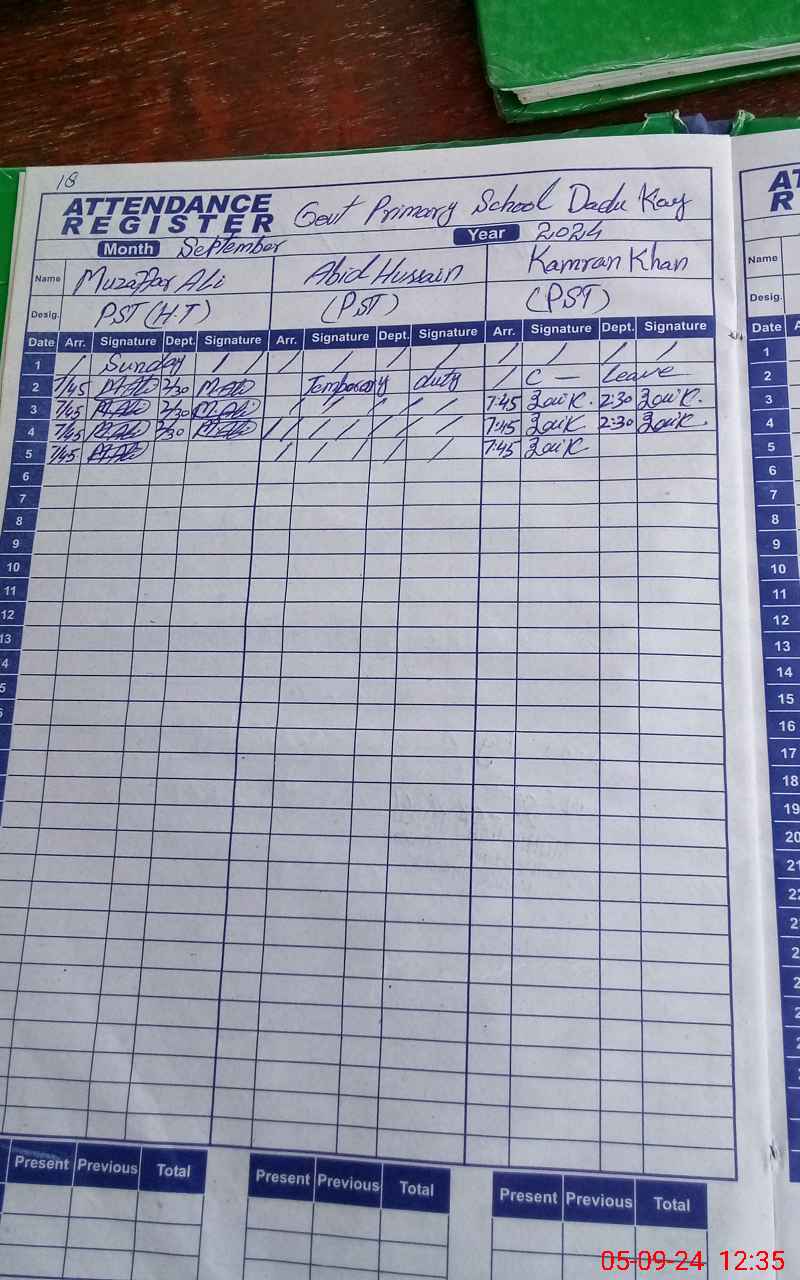 18
ATTENDANCE REGISTER Govt Primary School Dadu Kay
Month September Year 2024
Name Muzaffar Ali Abid Hussain Kamran Khan
Desig. PST (H.T) (PST) (PST)
Date Arr. Signature Dept. Signature Arr. Signature Dept. Signature Arr. Signature Dept. Signature
1 / Sunday / / / / / / / / / /
2 7/45 M.Ali 2/30 M.Ali Temporary duty / C — leave
3 7/45 M.Ali 2/30 M.Ali / / / / / / 7:45 2:30
4 7/45 M.Ali 2/30 M.Ali / / / / / / / 7:45 2:30
5 7/45 M.Ali / / / / / / 7:45
6
7
8
9
10
11
12
13
4
5
6
Present Previous Total Present Previous Total Present Previous Total
AT
R
Name
Desig.
Date A
1
2
3
4
5
6
7
8
9
10
11
12
13
14
15
16
17
18
19
20
21
22
2
2
2
2
2
05-09-24 12:35